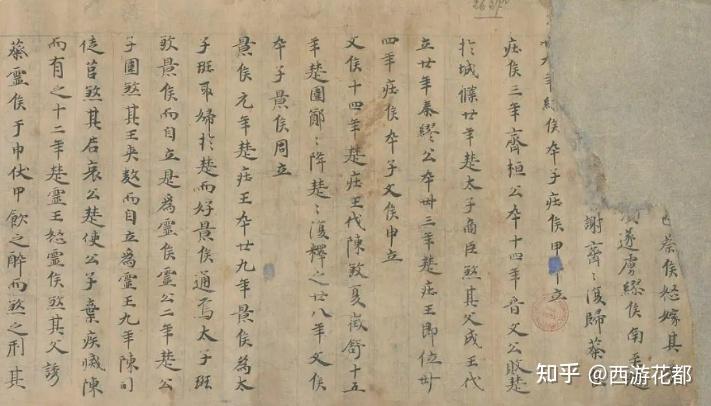 已蔡侯怒嫁其
遂虜繆侯南至
謝齊〻復歸蔡
廿九年繆侯卒子莊侯甲立
莊侯三年齊桓公卒十四年晉文公敗楚
於城濮廿年楚太子商臣煞其父成王代
立廿年秦繆公卒卅三年楚莊王即位卅
四年莊侯卒子文侯申立
文侯十四年楚莊王伐陳煞夏徵舒十五
年楚圍鄭〻降楚〻復釋之廿八年文侯
卒子景侯周立
景侯元年楚莊王卒廿九年景侯為太
子班取婦於楚而好景侯通焉太子班
煞景侯而自立是為靈侯靈公二年楚公
子圍煞其王夾敖而自立為靈王九年陳司
徒莒煞其君哀公楚使公子棄疾滅陳
而有之十二年楚靈王怒靈侯煞其父誘
蔡靈侯于申伏甲飲之醉而煞之刑其
知乎 @西游花都